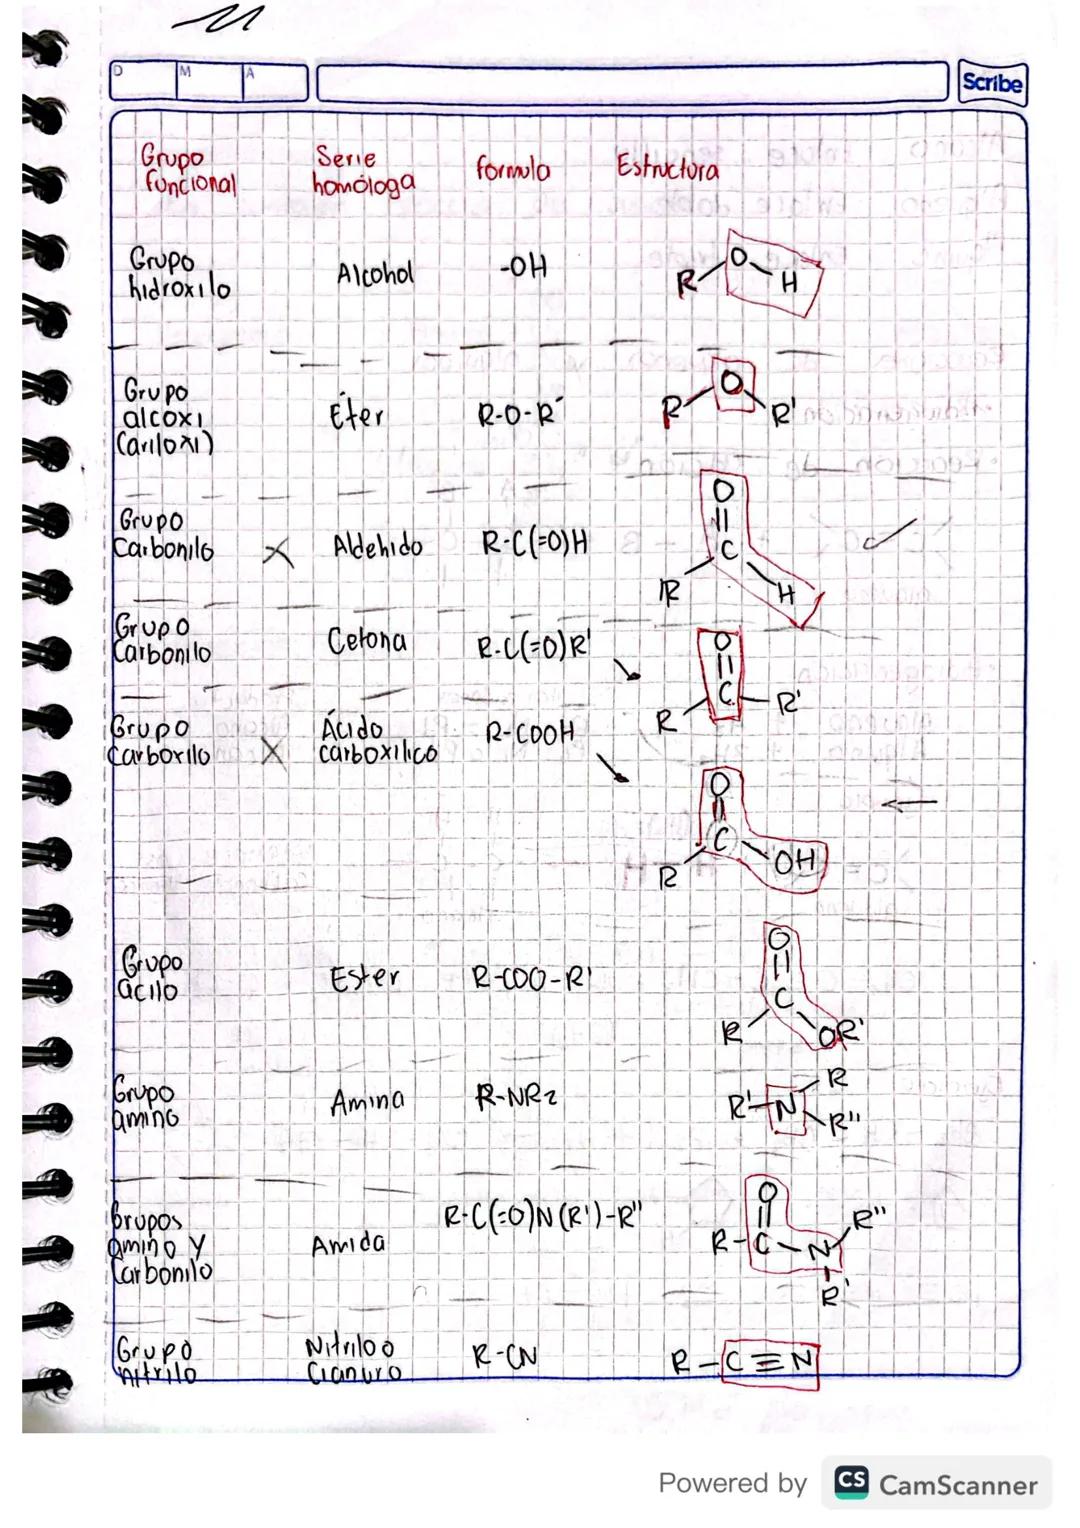 D M A
Scribe
Grupo funcional Serie homóloga formula Estructura
Grupo hidroxilo Alcohol -OH R O H
Grupo alcoxi (ariloxi) Éter R-O-R' R O R'
Grupo Carbonilo X Aldehido R-C(=O)H O C R H
Grupo Carbonilo Cetona R-C(=O)R' O C R R'
Grupo Carboxilo X Ácido carboxilico R-COOH O C R OH
Grupo acilo Ester R-COO-R' O C R OR'
Grupo amino Amina R-NR2 R'-N R R''
Grupos amino y Carbonilo Amida R-C(=O)N(R')-R'' O R-C-N R'' R'
Grupo nitrilo Nitrilo o Cianuro R-CN R-C≡N
Powered by CS CamScanner